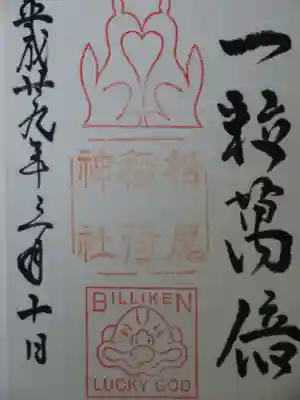 一粒萬倍
松尾
稲荷
神社
BILLIKEN
LUCKY GOD
平成廿九年三月十日